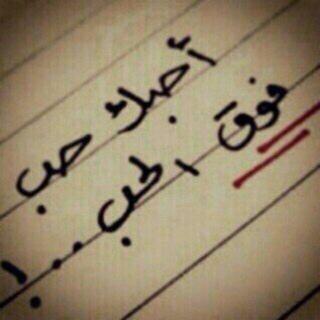 أحبك حب
فوق الحب..!